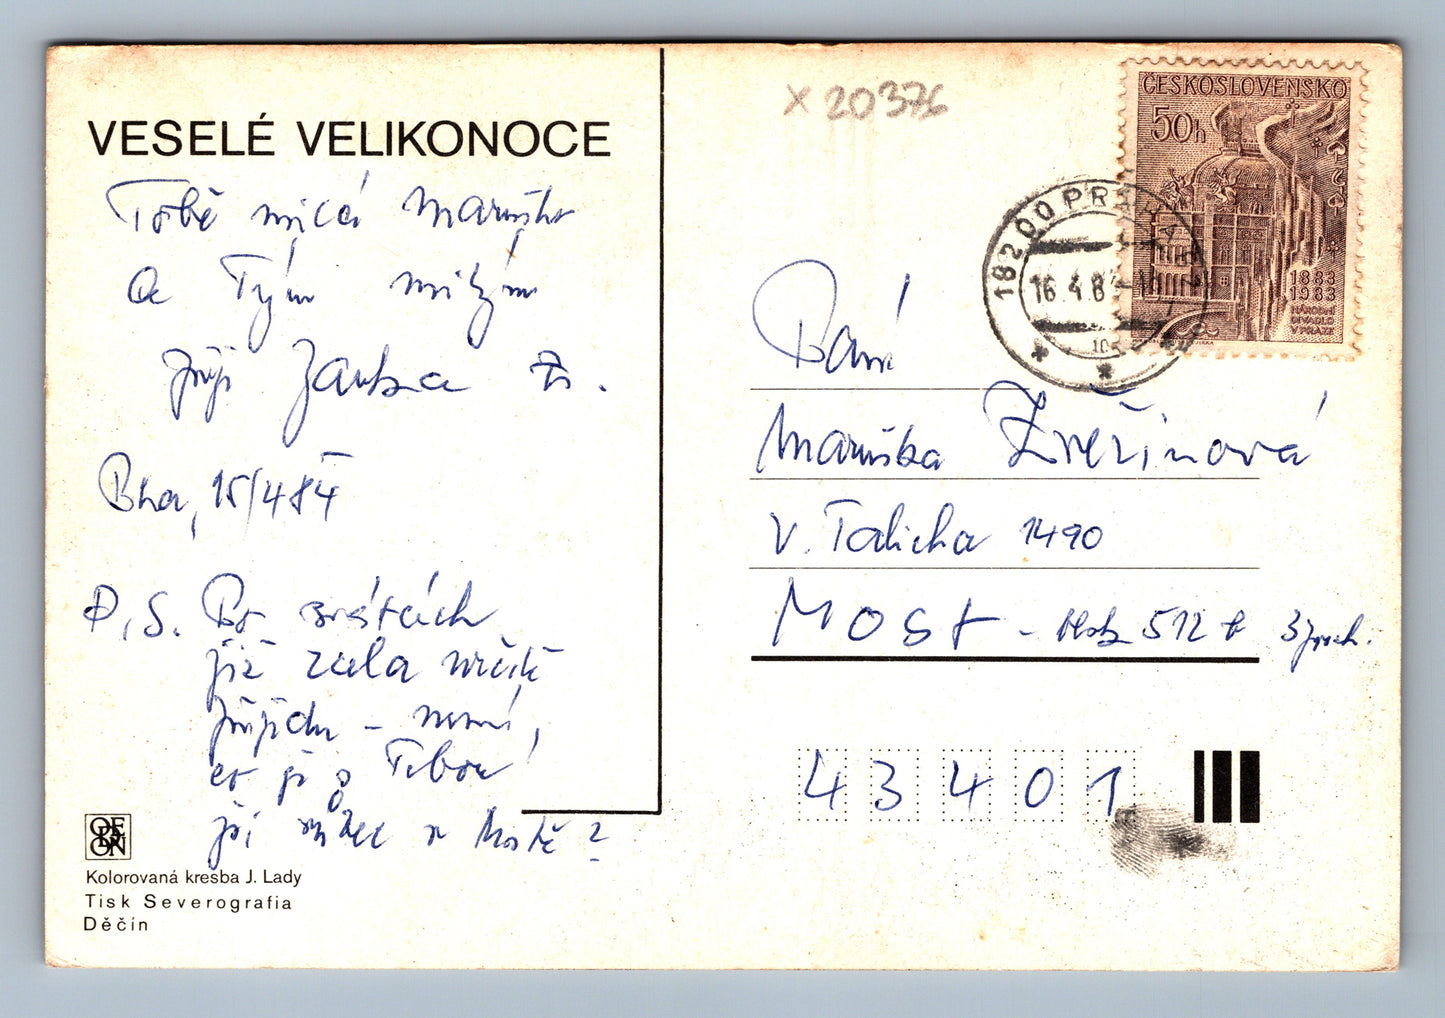 VESELÉ VELIKONOCE
Tobě milá Maruško
a Tvým milým
přeje Jarka
15/4 84
P.S. Po svátcích
již zcela určitě
přijedu – nevíš,
co je s Tebou
v Mostě?
ODEON
Kolorovaná kresba J. Lady
Tisk Severografia
Děčín
X 20376
ČESKOSLOVENSKO
50h
1883
1983
NÁRODNÍ
DIVADLO
V PRAZE
182 00 PRAHA
16.4.8
Paní
Maruška Zvěřinová
V. Talicha 1490
MOST – blok 512
43401